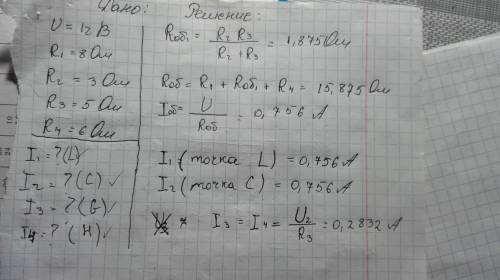 Дано:
U = 12 В
R1 = 8 Ом
R2 = 3 Ом
R3 = 5 Ом
R4 = 6 Ом
I1 = ? (L) ✓
I2 = ? (C) ✓
I3 = ? (G) ✓
I4 = ? (H) ✓
Решение:
Rоб1 = R2 R3 / R2 + R3 = 1,875 Ом
Rоб = R1 + Rоб1 + R4 = 15,875 Ом
Iоб = U / Rоб = 0,756 А
I1 (точка L) = 0,756 А
I2 (точка C) = 0,756 А
* I3 = I4 = U2 / R3 = 0,2832 А